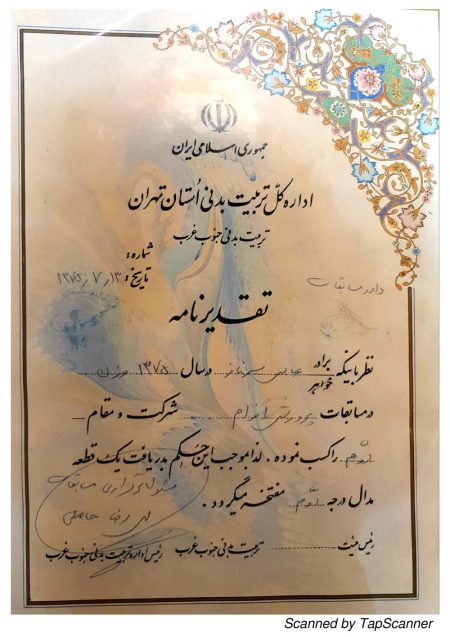 جمهوری اسلامی ایران
اداره کل تربیت بدنی استان تهران
تربیت بدنی جنوب غرب
شماره:
تاریخ: ۱۳۷۵٫۷٫۱۳
داور مسابقات
تقدیرنامه
نظر باینکه برادر خواهر در سال ۱۳۷۵
در مسابقات پرورش اندام شرکت و مقام
را کسب نموده . لذا بموجب این حکم بدریافت یک قطعه
مدال درجه مفتخر میگردد .
مسئول برگزاری مسابقات
رضا
رئیس هیئت تربیت بدنی جنوب غرب رئیس اداره تربیت بدنی جنوب غرب
Scanned by TapScanner